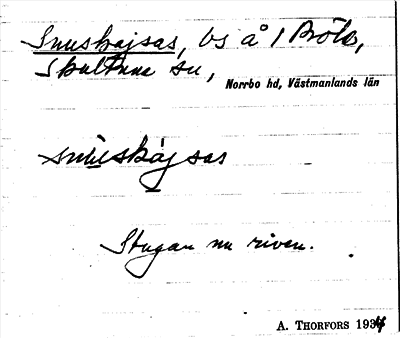 Snuskajsas, bs å 1 Bröte,
Skultuna sn,
Norrbo hd, Västmanlands län
snuskájsas
Stugan nu riven.
A. THORFORS 1934